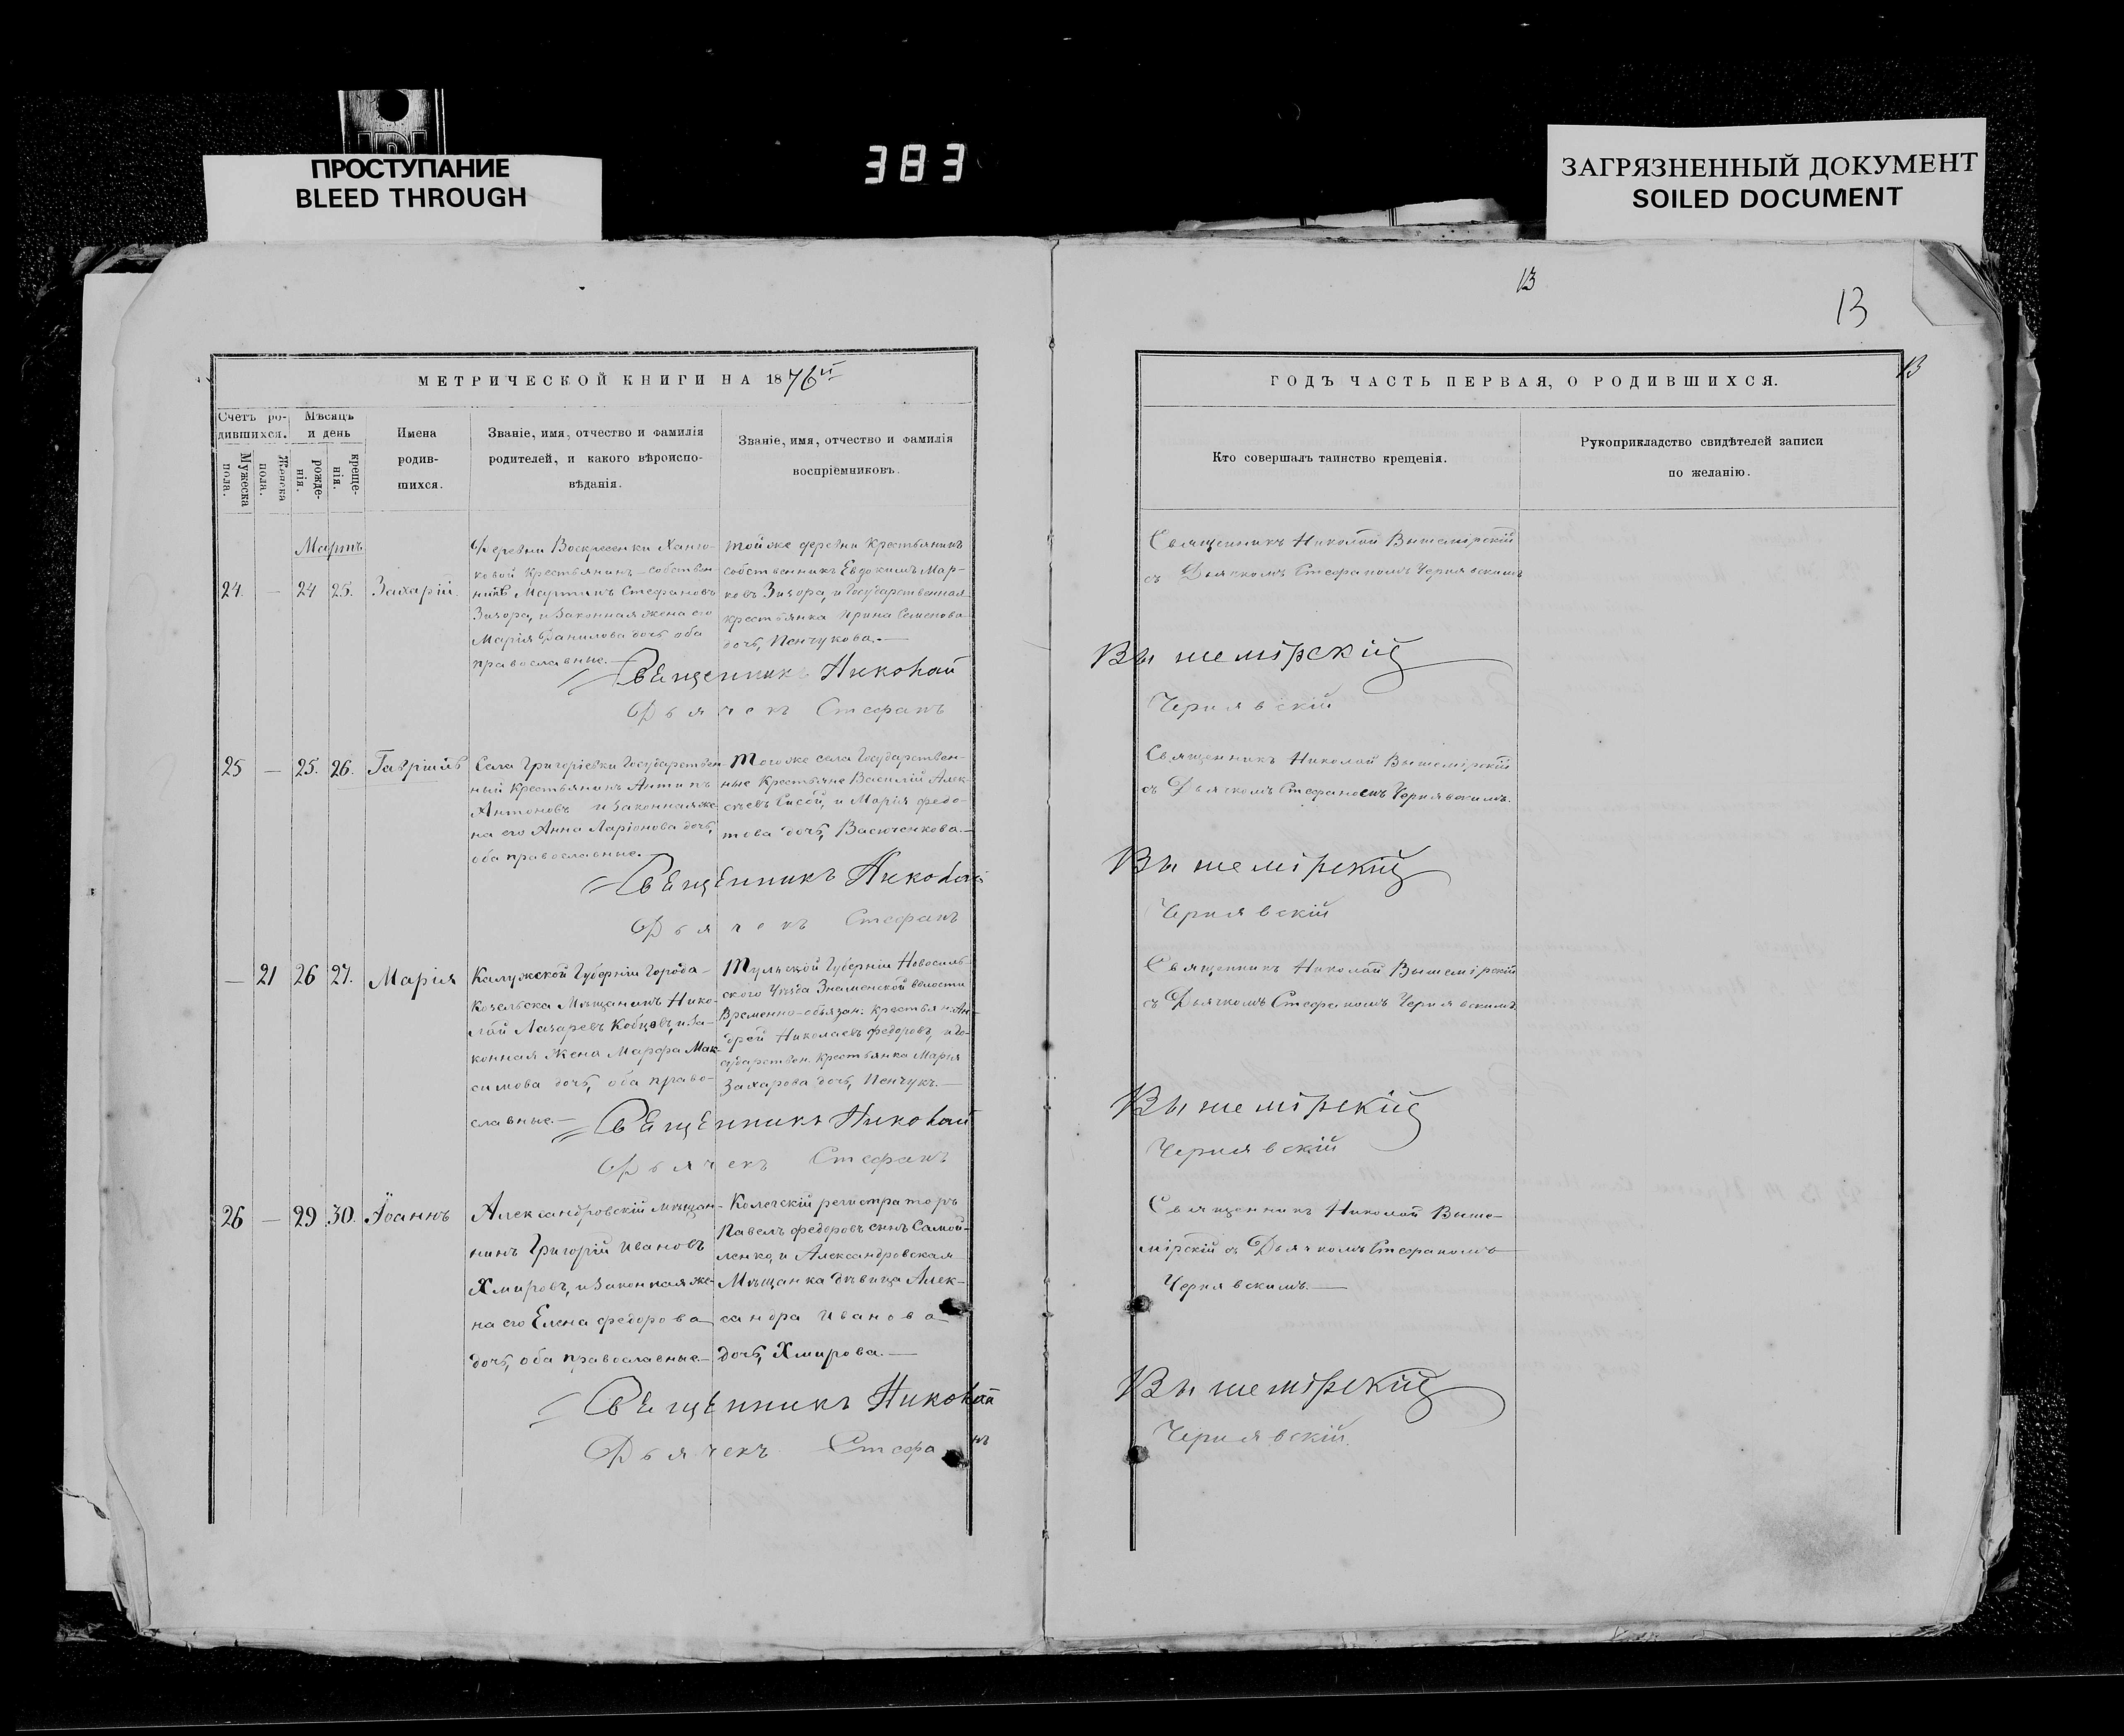 ПРОСТУПАНИЕ
BLEED THROUGH
383
ЗАГРЯЗНЕННЫЙ ДОКУМЕНТ
SOILED DOCUMENT
13
13
13
МЕТРИЧЕСКОЙ КНИГИ НА 1876й
Счетъ ро-
дившихся.
Мужеска
пола.
Женска
пола.
Мѣсяцъ
и день
рожде-
нія.
креще-
нія.
Имена
родив-
шихся.
Званіе, имя, отчество и фамилія
родителей, и какого вѣроиспо-
вѣданія.
Званіе, имя, отчество и фамилія
воспріемниковъ.
Мартъ
24. — 24 25. Захарій.
Деревни Воскресенки Ханжо-
ковой Крестьянинъ-собствен-
никъ Мартинъ Стефановъ
Зизора, и Законная жена его
Марія Данилова дочь, оба
православные.—
Тойже деревни Крестьянинъ
собственникъ Евдокимъ Мар-
ковъ Зизора, и Государственная
крестьянка Ирина Семенова
дочь, Пенчукова.—
Священникъ Николай
Дьячекъ Стефанъ
25 — 25. 26. Гавріилъ
Села Григоріевки Государствен-
ный Крестьянинъ Антипъ
Антоновъ и Законная же-
на его Анна Ларіонова дочь,
оба православные.—
Тогоже села Государствен-
ные Крестьяне Василій Алек-
сѣевъ Сисой, и Марія Федо-
това дочь, Васюченкова.—
Священникъ Николай
Дьячекъ Стефанъ
— 21 26 27. Марія
Калужской Губерніи Города
Козельска Мѣщанинъ Нико-
лай Лазаревъ Кобцовъ, и За-
конная жена Марфа Мак-
симова дочь, оба право-
славные.—
Тульской Губерніи Новосиль-
ского Уѣзда Знаменской волости
Временно-обязан. крестьян. Ан-
дрей Николаевъ Федоровъ, и Го-
сударствен. крестьянка Марія
Захарова дочь, Пенчукъ.—
Священникъ Николай
Дьячекъ Стефанъ
26 — 29 30. Іоаннъ
Александровскій мѣщан-
нинъ Григорій Ивановъ
Хмировъ, и Законная же-
на его Елена Федорова
дочь, оба православные.—
Колегскій регистраторъ
Павелъ Федоровъ сынъ Самой-
ленко, и Александровская
Мѣщанка дѣвица Алек-
сандра Иванова
дочь, Хмирова.—
Священникъ Николай
Дьячекъ Стефанъ
ГОДЪ ЧАСТЬ ПЕРВАЯ, О РОДИВШИХСЯ.
Кто совершалъ таинство крещенія.
Рукоприкладство свидѣтелей записи
по желанію.
Священникъ Николай Вышемірскій
съ Дьячкомъ Стефаномъ Чернявскимъ
Вышемірскій
Чернявскій
Священникъ Николай Вышемірскій
съ Дьячкомъ Стефаномъ Чернявскимъ.
Вышемірскій
Чернявскій
Священникъ Николай Вышемірскій
съ Дьячкомъ Стефаномъ Чернявскимъ.
Вышемірскій
Чернявскій
Священникъ Николай Выше-
мірскій съ Дьячкомъ Стефаномъ
Чернявскимъ.—
Вышемірскій
Чернявскій.